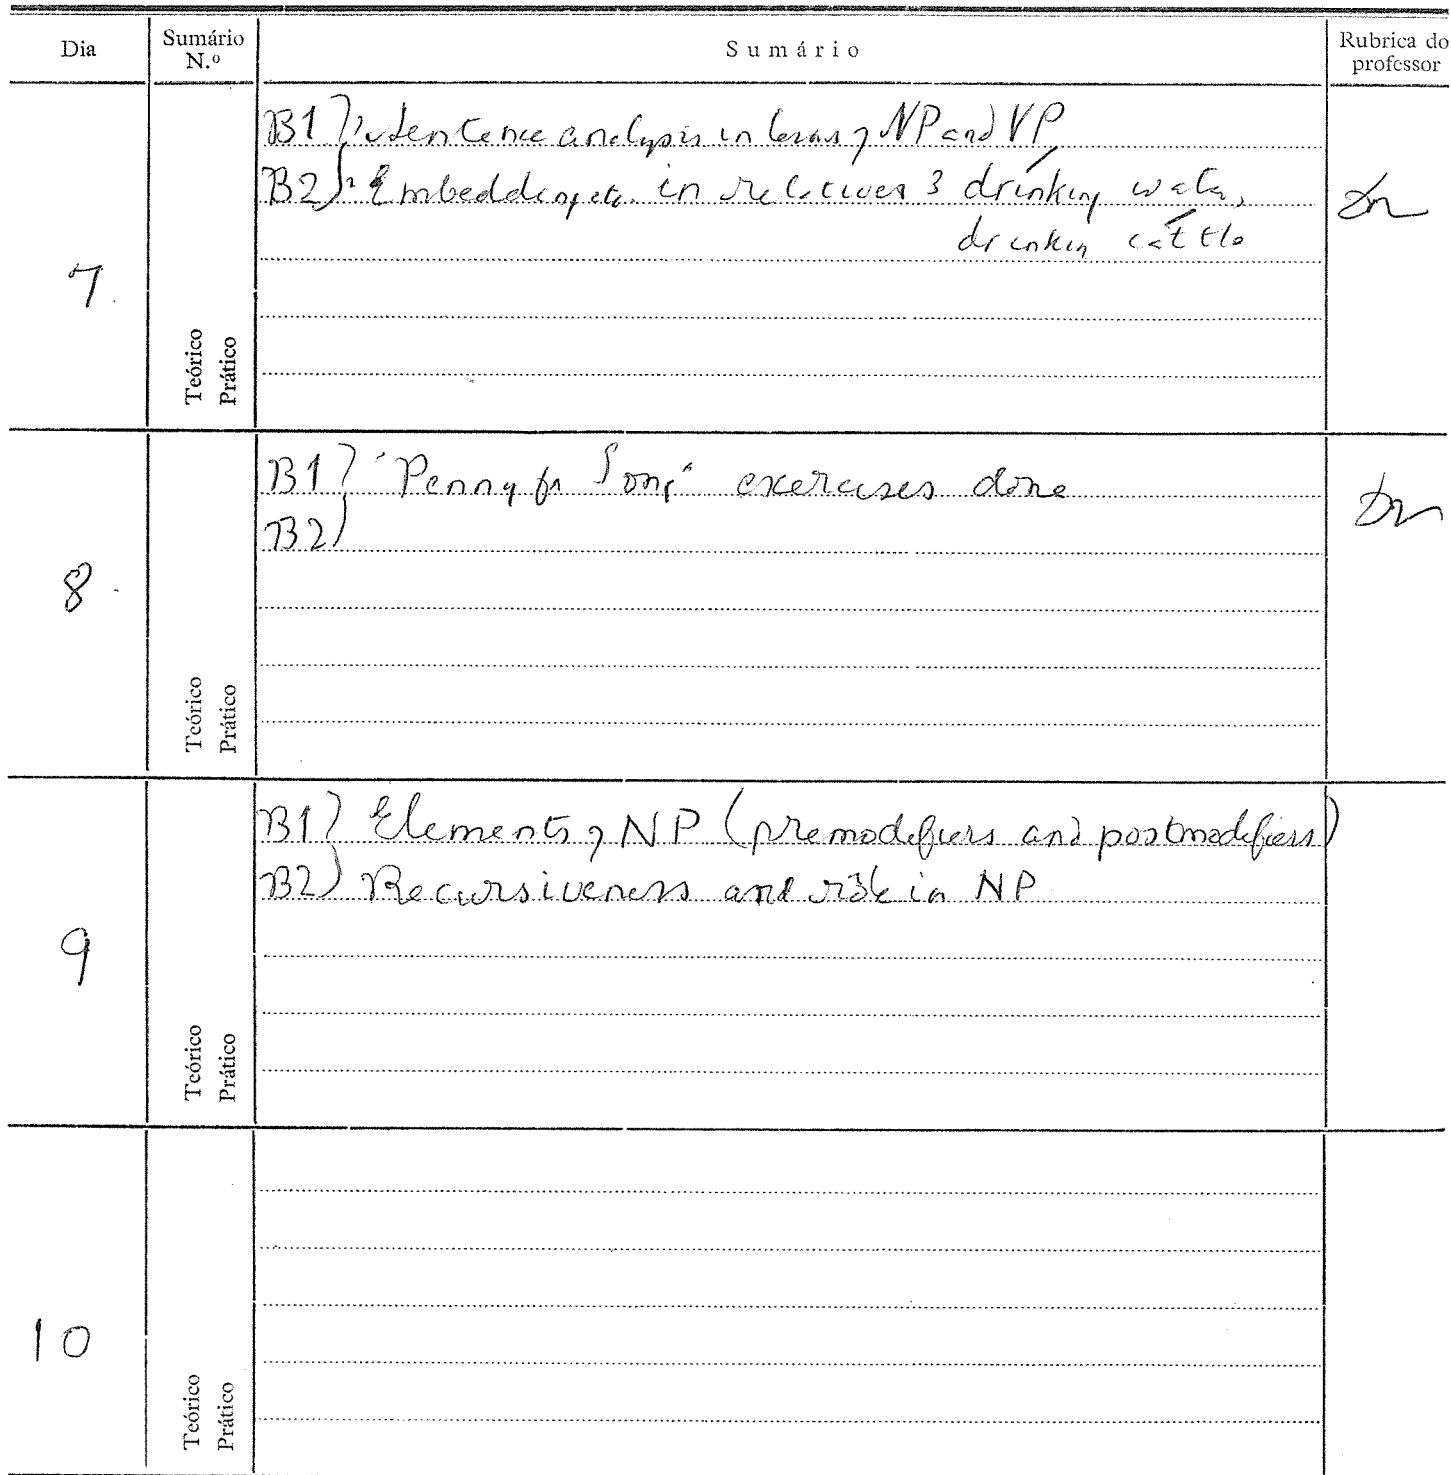 Dia Sumário N.º Sumário Rubrica do professor
B1) 1. Sentence analysis in terms of NP and VP
B2) 2. Embedding etc. in relatives 3 drínking water,
drinkin cáttle
7.
Teórico
Prático
B1) "Penny for Song" exercises done
B2)
8.
Teórico
Prático
B1) Elements of NP (premodifiers and postmodifiers)
B2) Recursiveness and rôle in NP
9
Teórico
Prático
10
Teórico
Prático